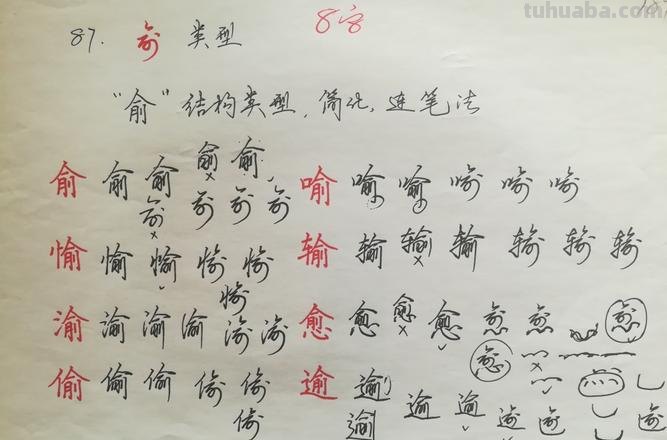 tuhuaba.com
87. 俞 类型 8字
"俞"结构类型,简化,连笔法
俞 俞 俞 俞 俞 喻 喻 喻 喻 喻 喻
俞 俞 俞 俞
愉 愉 愉 愉 愉 输 输 输 输 输 输 输
愉
渝 渝 渝 渝 渝 渝 愈 愈 愈 愈 愈 愈 愈
愈
偷 偷 偷 偷 偷 逾 逾 逾 逾 逾 逾
偷 逾